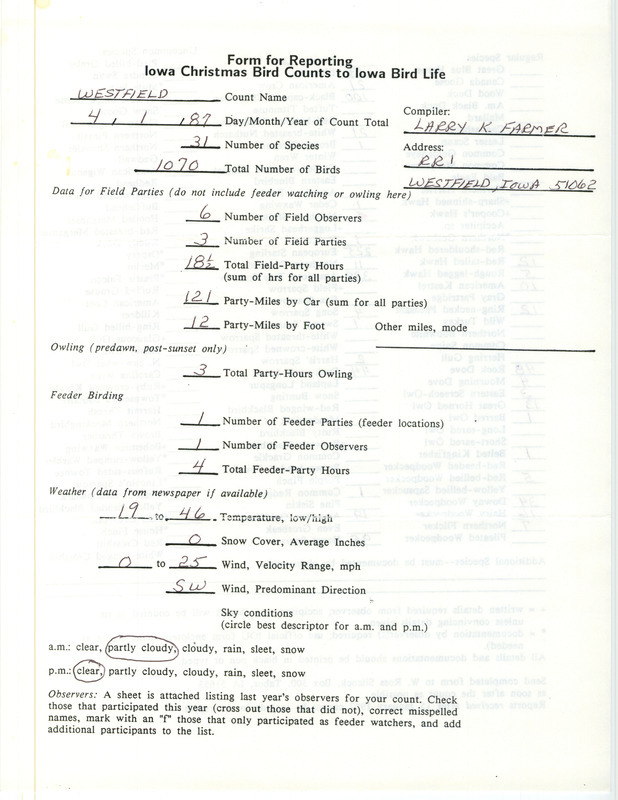 Form for Reporting
Iowa Christmas Bird Counts to Iowa Bird Life
WESTFIELD Count Name
4, 1, 87 Day/Month/Year of Count Total
31 Number of Species
1070 Total Number of Birds
Compiler:
LARRY K. FARMER
Address:
RR 1
WESTFIELD, IOWA 51062
Data for Field Parties (do not include feeder watching or owling here)
6 Number of Field Observers
3 Number of Field Parties
18 1/2 Total Field-Party Hours
(sum of hrs for all parties)
121 Party-Miles by Car (sum for all parties)
12 Party-Miles by Foot Other miles, mode
Owling (predawn, post-sunset only)
3 Total Party-Hours Owling
Feeder Birding
1 Number of Feeder Parties (feeder locations)
1 Number of Feeder Observers
4 Total Feeder-Party Hours
Weather (data from newspaper if available)
19 to 46 Temperature, low/high
0 Snow Cover, Average Inches
0 to 25 Wind, Velocity Range, mph
SW Wind, Predominant Direction
Sky conditions
(circle best descriptor for a.m. and p.m.)
a.m.: clear, partly cloudy, cloudy, rain, sleet, snow
p.m.: clear, partly cloudy, cloudy, rain, sleet, snow
Observers: A sheet is attached listing last year's observers for your count. Check
those that participated this year (cross out those that did not), correct misspelled
names, mark with an "f" those that only participated as feeder watchers, and add
additional participants to the list.